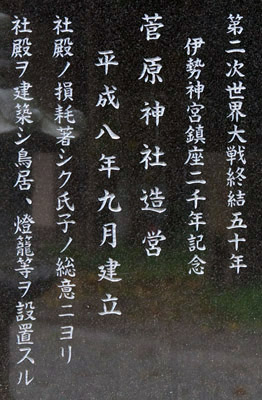 第二次世界大戦終結五十年
伊勢神宮鎮座二千年記念
菅原神社造営
平成八年九月建立
社殿ノ損耗著シク氏子ノ総意ニヨリ
社殿ヲ建築シ鳥居、燈籠等ヲ設置スル